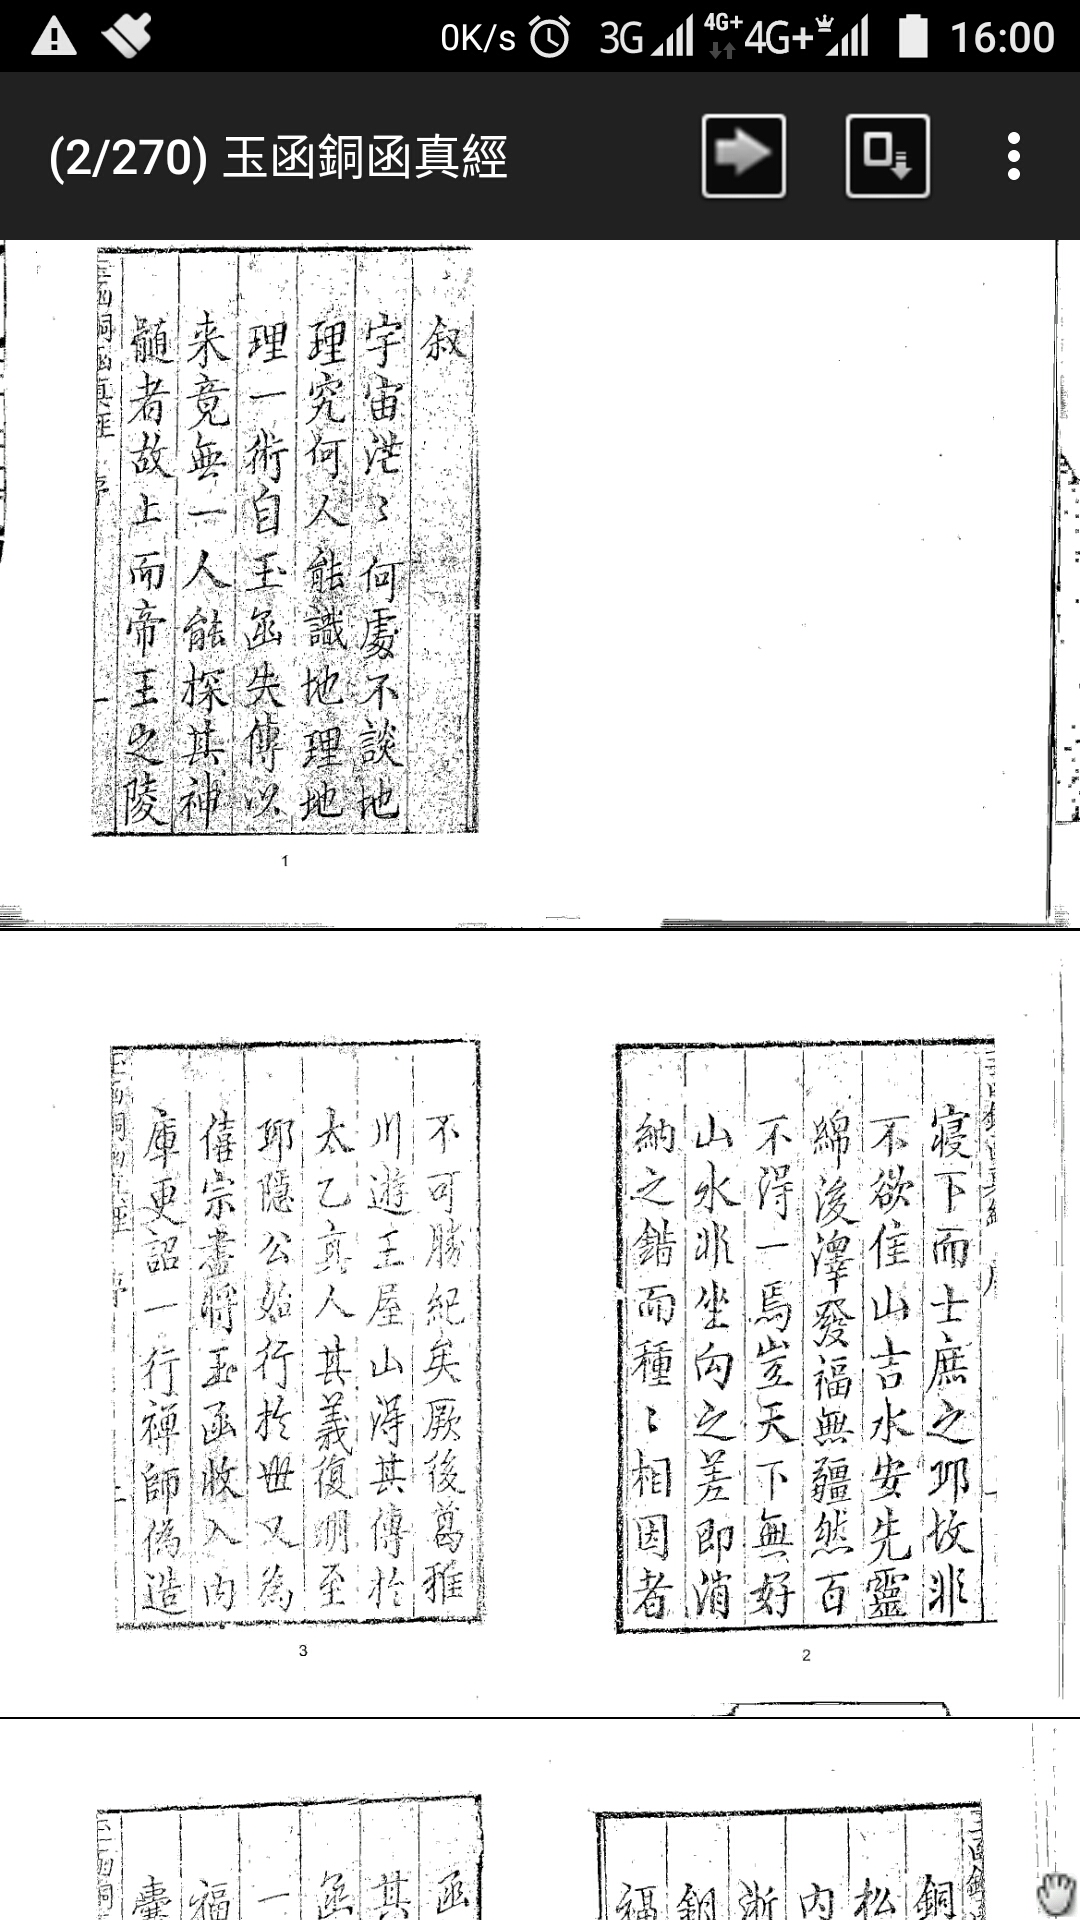 0K/s 3G 4G+ 4G+ 16:00
(2/270) 玉函銅函真經
叙
宇宙茫〻何處不談地
理究何人能識地理地
理一術自玉函失傳以
来竟無一人能探其神
髓者故上而帝王之陵
1
寝下而士庶之邱坟非
不欲住山吉水安先靈
綿後澤發福無疆然百
不淂一焉豈天下無好
山水非坐向之差即消
納之錯而種〻相因者
2
不可勝紀矣厥後葛稚
川遊王屋山淂其傳於
太乙真人其義復明至
耶隱公始行於世又為
僖宗盡將玉函收入内
庫更詔一行禅師偽造
3
銅
松
内
浙
銅
福
函
其
函
一
福
囊